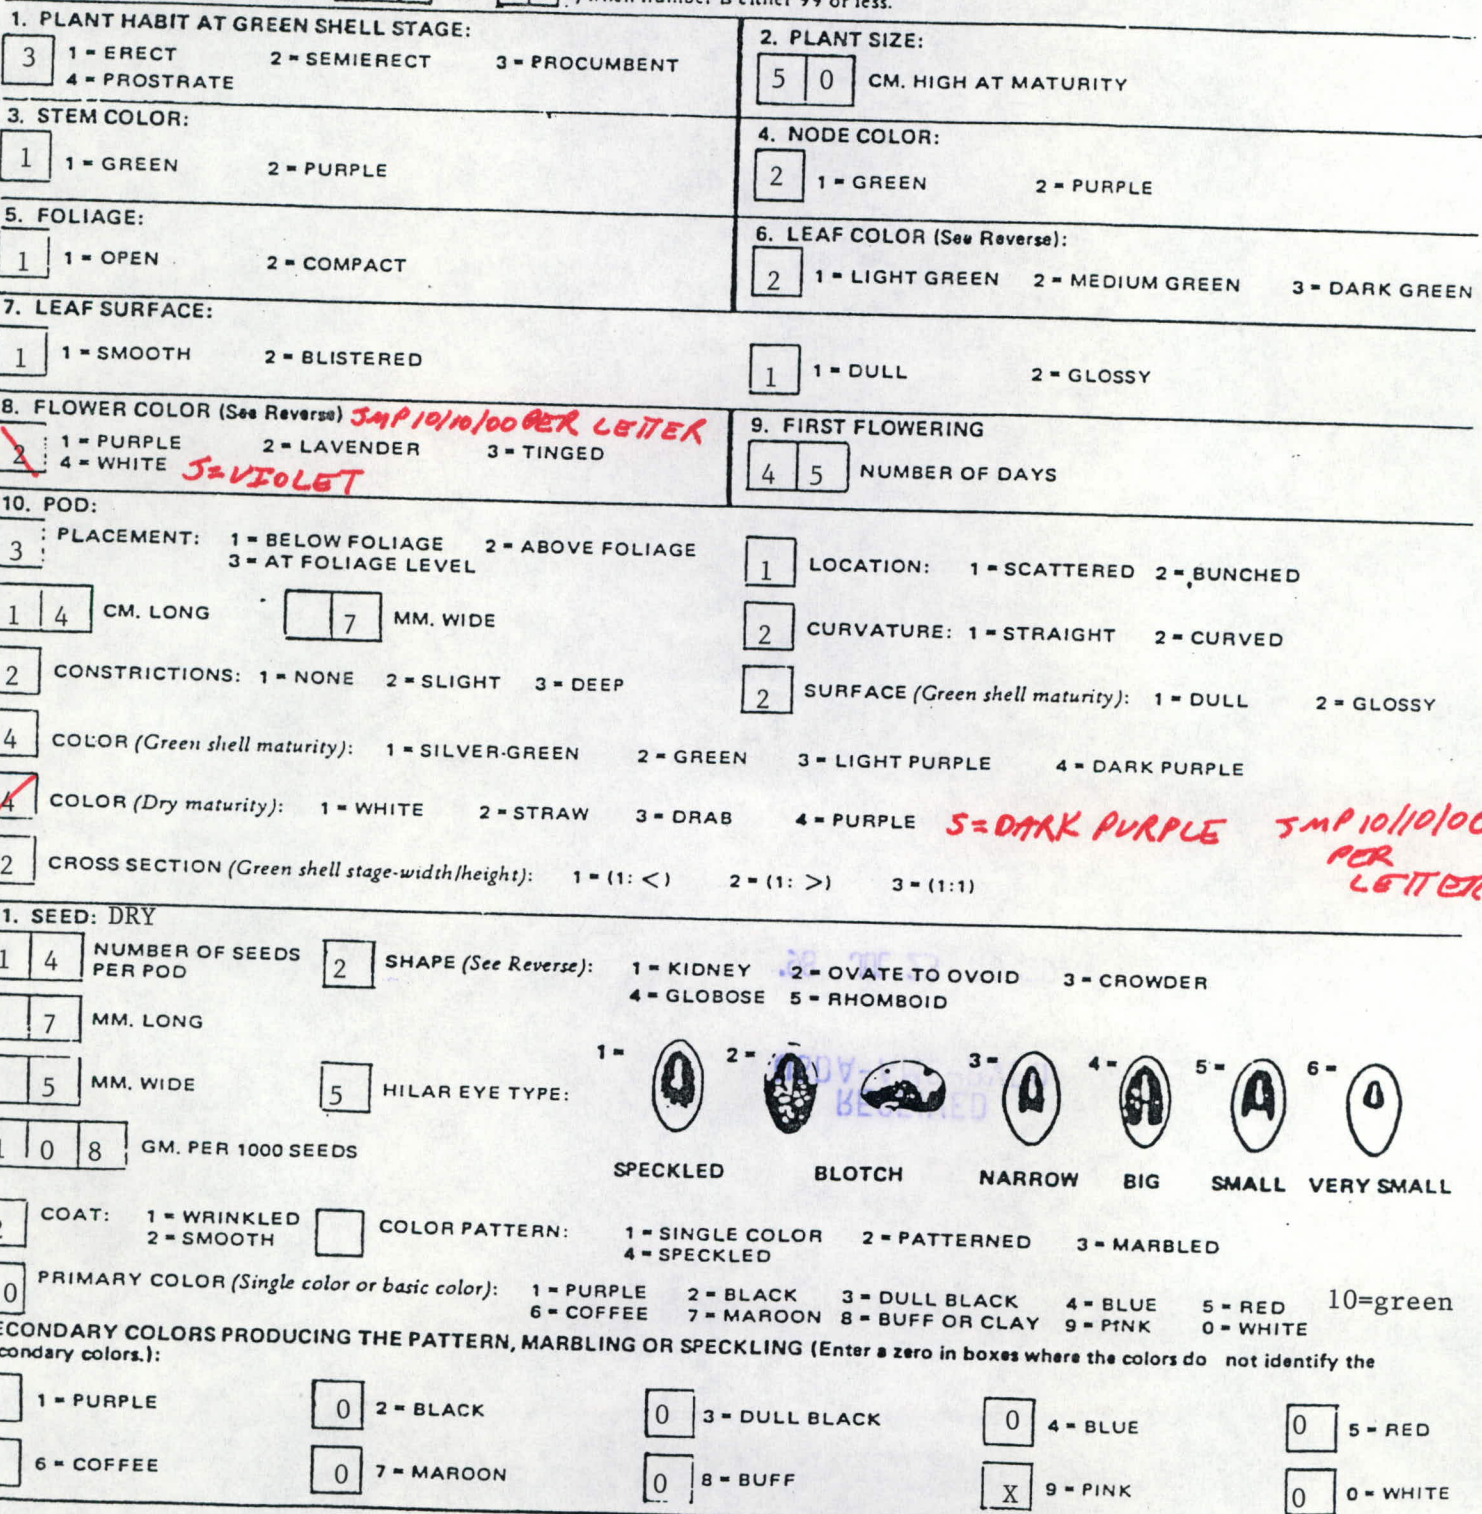 when number is either 99 or less.
1. PLANT HABIT AT GREEN SHELL STAGE:
3 1 = ERECT 2 = SEMIERECT 3 = PROCUMBENT
4 = PROSTRATE
2. PLANT SIZE:
5 0 CM. HIGH AT MATURITY
3. STEM COLOR:
1 1 = GREEN 2 = PURPLE
4. NODE COLOR:
2 1 = GREEN 2 = PURPLE
5. FOLIAGE:
1 1 = OPEN 2 = COMPACT
6. LEAF COLOR (See Reverse):
2 1 = LIGHT GREEN 2 = MEDIUM GREEN 3 = DARK GREEN
7. LEAF SURFACE:
1 1 = SMOOTH 2 = BLISTERED
1 1 = DULL 2 = GLOSSY
8. FLOWER COLOR (See Reverse) JMP 10/10/00 PER LETTER
2 1 = PURPLE 2 = LAVENDER 3 = TINGED
4 = WHITE 5=VIOLET
9. FIRST FLOWERING
4 5 NUMBER OF DAYS
10. POD:
3 PLACEMENT: 1 = BELOW FOLIAGE 2 = ABOVE FOLIAGE
3 = AT FOLIAGE LEVEL
1 LOCATION: 1 = SCATTERED 2 = BUNCHED
1 4 CM. LONG 7 MM. WIDE
2 CURVATURE: 1 = STRAIGHT 2 = CURVED
2 CONSTRICTIONS: 1 = NONE 2 = SLIGHT 3 = DEEP
2 SURFACE (Green shell maturity): 1 = DULL 2 = GLOSSY
4 COLOR (Green shell maturity): 1 = SILVER-GREEN 2 = GREEN 3 = LIGHT PURPLE 4 = DARK PURPLE
4 COLOR (Dry maturity): 1 = WHITE 2 = STRAW 3 = DRAB 4 = PURPLE 5=DARK PURPLE JMP 10/10/00
PER
LETTER
2 CROSS SECTION (Green shell stage-width/height): 1 = (1: <) 2 = (1: >) 3 = (1:1)
1. SEED: DRY
1 4 NUMBER OF SEEDS
PER POD
2 SHAPE (See Reverse): 1 = KIDNEY 2 = OVATE TO OVOID 3 = CROWDER
4 = GLOBOSE 5 = RHOMBOID
7 MM. LONG
5 MM. WIDE
5 HILAR EYE TYPE: 1 = 2 = 3 = 4 = 5 = 6 =
SPECKLED BLOTCH NARROW BIG SMALL VERY SMALL
1 0 8 GM. PER 1000 SEEDS
2 COAT: 1 = WRINKLED
2 = SMOOTH
COLOR PATTERN: 1 = SINGLE COLOR 2 = PATTERNED 3 = MARBLED
4 = SPECKLED
0 PRIMARY COLOR (Single color or basic color): 1 = PURPLE 2 = BLACK 3 = DULL BLACK 4 = BLUE 5 = RED 10=green
6 = COFFEE 7 = MAROON 8 = BUFF OR CLAY 9 = PINK 0 = WHITE
ECONDARY COLORS PRODUCING THE PATTERN, MARBLING OR SPECKLING (Enter a zero in boxes where the colors do not identify the
condary colors.):
1 = PURPLE 0 2 = BLACK 0 3 = DULL BLACK 0 4 = BLUE 0 5 = RED
6 = COFFEE 0 7 = MAROON 0 8 = BUFF X 9 = PINK 0 0 = WHITE